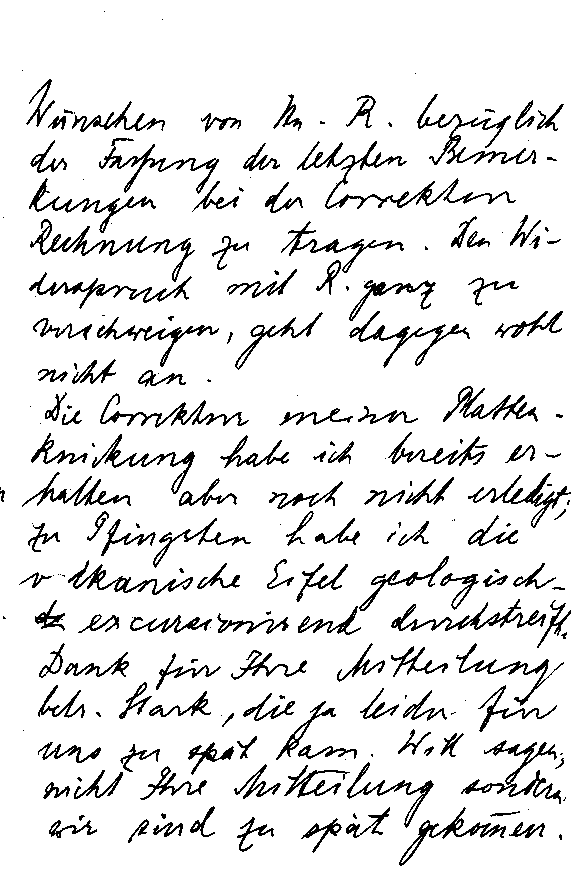 Wünschen von Mr. R. bezüglich
der Fassung der letzten Bemer-
kungen bei der Correktur
Rechnung zu tragen. Den Wi-
derspruch mit R. ganz zu
verschweigen, geht dagegen wohl
nicht an.
Die Correktur meiner Platten-
knickung habe ich bereits er-
halten aber noch nicht erledigt;
zu Pfingsten habe ich die
vulkanische Eifel geologisch-
excursionirend durchstreift.
Dank für Ihre Mitteilung
betr. Stark, die ja leider für
uns zu spät kam. Will sagen,
nicht Ihre Mitteilung sondern
wir sind zu spät gekommen.